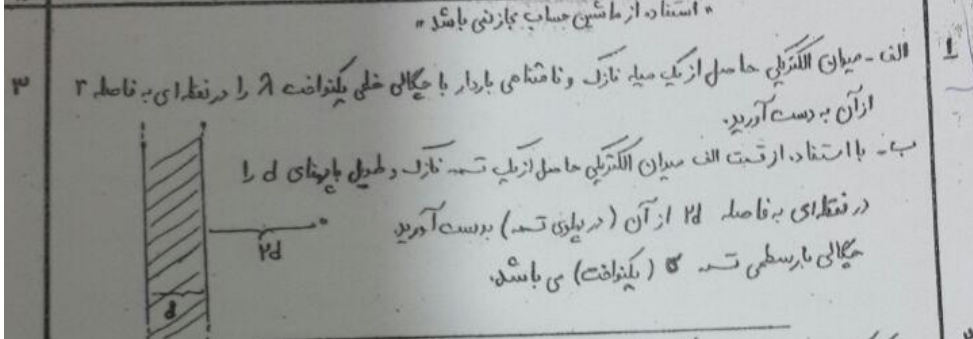 " استفاده از ماشین حساب مجاز نمی باشد "
۱ الف - میدان الکتریکی حاصل از یک میله نازک و نامتناهی باردار با چگالی خطی یکنواخت λ را در نقطه ای به فاصله r ۳
از آن به دست آورید.
ب - با استفاده از قسمت الف میدان الکتریکی حاصل از یک تسمه نازک و طویل با پهنای d را
در نقطه ای به فاصله ۲d از آن (در پهلوی تسمه) بدست آورید
چگالی بار سطحی تسمه σ (یکنواخت) می باشد.
۲d
d